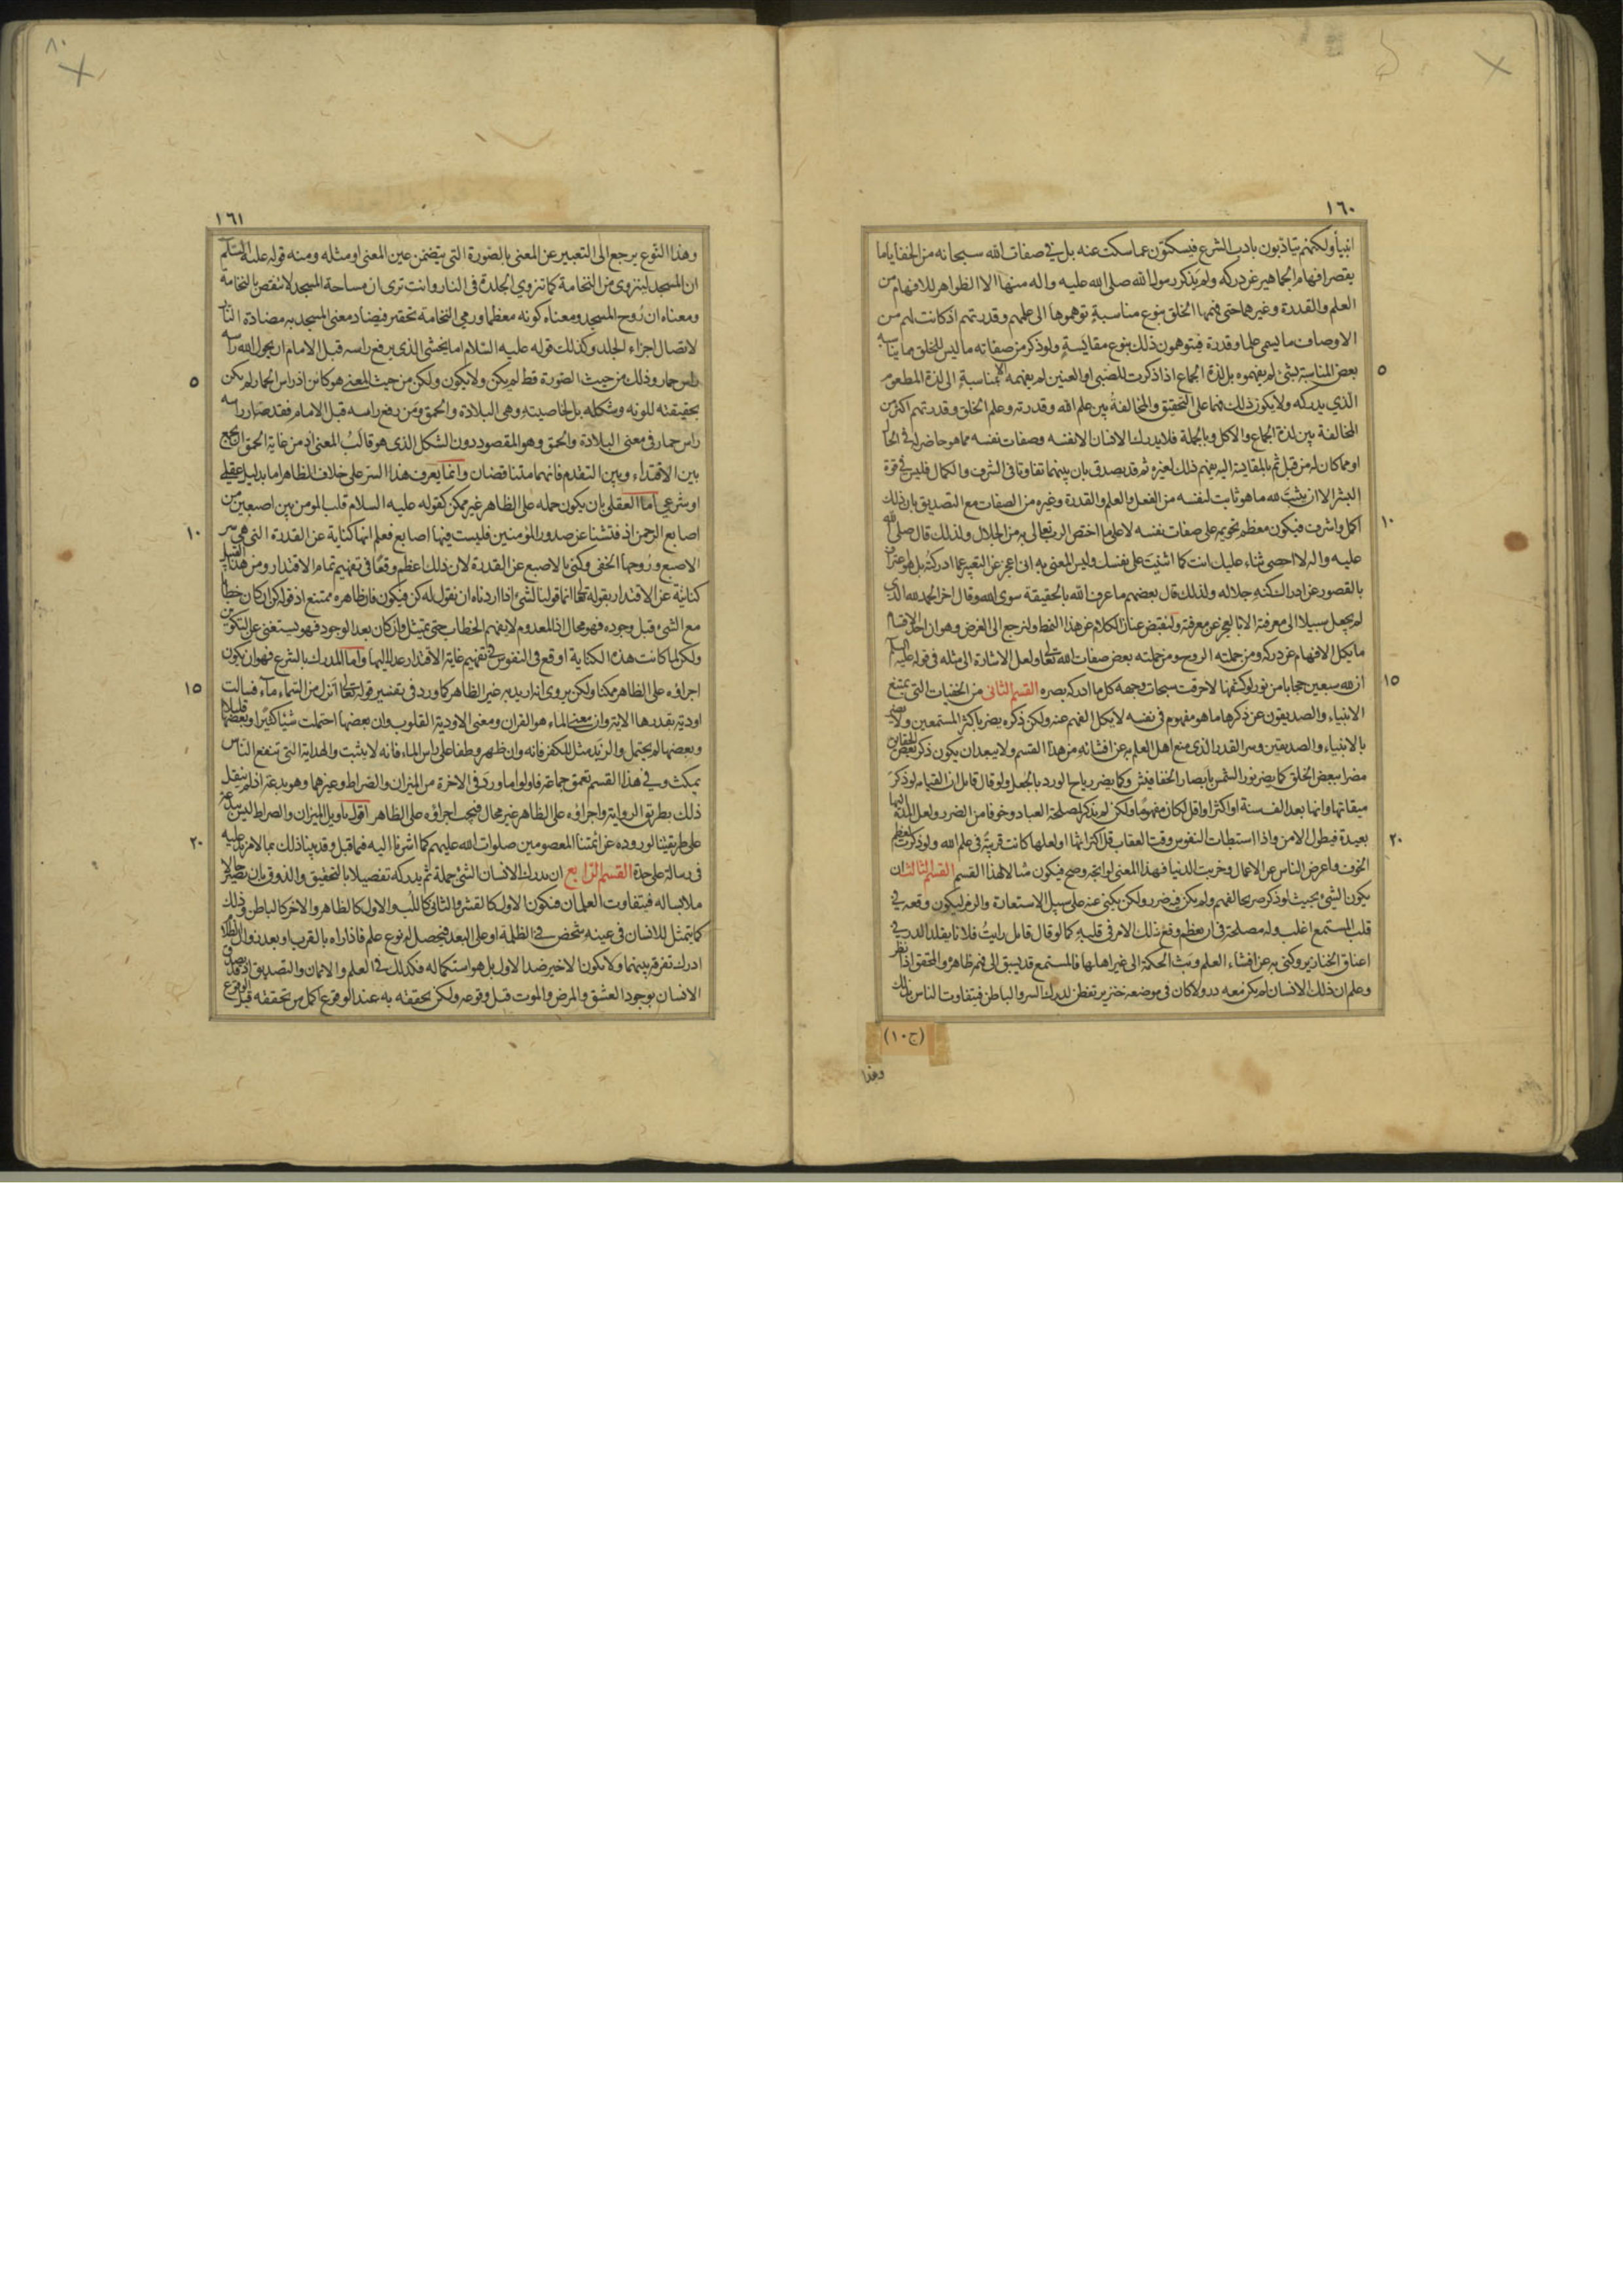 ١٦٠
انبيأ ولكنهم يتادّبون بادب الشرع فيسكتون عما سكت عنه بل في صفات الله سبحانه من الخفايا ما
يقصر افهام الجماهير عن دركه ولم يذكر رسول الله صلى الله عليه واله منها الا الظواهر للافهام من
العلم والقدرة وغيرهما حتى فهمها الخلق بنوع مناسبة توهموها الى علمهم وقدرتهم اذ كانت لهم من
الاوصاف ما يسمى علما وقدرة فيتوهمون ذلك بنوع مقايَسةٍ ولو ذكر من صفاته ما ليس للخلق ما يناسبه
٥
بعض المناسبة بشئ لم يفهموه بل لذة الجماع اذا ذكرت للصبى او العنين لم يفهمه الا بمناسبةٍ الى لذة المطعوم
الذي يدركه ولا يكون ذلك فهما على التحقيق والمخالفةُ بين علم الله وقدرته وعلم الخلق وقدرتهم اكثر من
المخالفة بين لذة الجماع والاكل وبالجملة فلا يدرك الانسان الا نفسه وصفات نفسه مما هو حاضر له في الحال
او مما كان له من قبل ثم بالمقايسة اليه يفهم ذلك لغيره ثم قد يصدق بان بينهما تفاوتا فى الشرف والكمال فليس في قوة
البشر الا ان يثبت لله ما هو ثابت لنفسه من الفعل والعلم والقدرة وغيره من الصفات مع التصديق بان ذلك
١٠
اكمل واشرف فيكون معظم تحويمه على صفات نفسه لا على ما اختص الرب تعالى به من الجلال ولذلك قال صلى الله
عليه واله لا احصى ثناء عليك انت كما اثنيت على نفسك وليس المعنى به انى اعجز عن التعبير عما ادركته بل هو اعتراف
بالقصور عن ادراك كنه جلاله ولذلك قال بعضهم ما عرف الله بالحقيقة سوى الله وقال اخر الحمد لله الذي
لم يجعل سبيلا الى معرفته الا بالعجز عن معرفته ولنقبض عنان الكلام عن هذا النمط ولنرجع الى الغرض وهو ان احد الاقسام
ما يكل الافهام عن دركه ومن جملته الروح ومن جملته بعض صفات الله تعالى ولعل الاشارة الى مثله فى قوله عليه السلم
١٥
ان لله سبعين حجابا من نور لو كشفها لاحرقت سبحات وجهه كل ما ادركه بصره القسم الثانى من الخفيات التي يمتنع
الانبياء والصديقون عن ذكرها ما هو مفهوم فى نفسه لا يكل الفهم عنه ولكن ذكره يضر باكثر المستمعين ولا يضر
بالانبياء والصديقين وسر القدر الذى منع اهل العلم به عن افشائه من هذا القسم ولا يبعد ان يكون ذكر بعض الحقايق
مضرا ببعض الخلق كما يضر نور الشمس بابصار الخفافيش وكما يضر رياح الورد بالجعل ولو قال قائل ان القيامه لو ذكر
ميقاتها وانها بعد الف سنة او اكثر او اقل لكان مفهومًا ولكن لم يذكر لمصلحة العباد وخوفا من الضرر ولعل المدة اليها
٢٠
بعيدة فيطول الامن واذا استبطات النفوس وقت العقاب قل اكتراثها ولعلها كانت قريبةً فى علم الله ولو ذكرت لعظم
الخوف واعرض الناس عن الاعمال وخربت الدنيا فهذا المعنى لو اتجه وصح فيكون مثالا لهذا القسم القسم الثالث ان
يكون الشئ بحيث لو ذكر صريحا لفهم ولم يكن فيه ضرر ولكن يكنى عنه على سبيل الاستعارة والرمز ليكون وقعه في
قلب المستمع اغلب وله مصلحة فى ان يعظم وقع ذلك الامر فى قلبهِ كما لو قال قائل رايتُ فلانا يقلد الدر في
اعناق الخنازير وكنى به عن افشاء العلم وبث الحكمة الى غير اهلها فالمستمع قد يسبق الى فهمه ظاهره والمحقق اذا نظر
وعلم ان ذلك الانسان لم يكن معه در ولا كان فى موضعه خنزير تفطن لدرك السر والباطن فيتفاوت الناس بذلك
(ج١٠)
وهذا
١٦١
وهذا النّوع يرجع الى التعبير عن المعنى بالصّورة التي يتضمن عين المعنى او مثله ومنه قوله عليه السّلم
ان المسجد لينزوى من النخامة كما تنزوي الجلدة فى النار وانت ترى ان مساحة المسجد لا تنقص بالنخامة
ومعناه ان رُوح المسجد ومعناه كونه معظما ورمي النخامة تحقير فيضاد معنى المسجد به مضادة النار
لاتصال اجزاء الجلد وكذلك قوله عليه السّلام اما يخشى الذى يرفع راسه قبل الامام ان يحول الله راسه
٥
راس حمار وذلك من حيث الصّورة قط لم يكن ولا يكون ولكن من حيث المعنى هو كائن اذ راس الحمار لم يكن
بحقيقته للونه وشكله بل لخاصيته وهى البلادة والحمق ومَن رفع راسه قبل الامام فقد صَار راسه
راس حمار فى معنى البلادة والحمق وهو المقصود دون الشكل الذى هو قالَبُ المعنى اذ من غاية الحمق الجمع
بين الاقتداء وبين التقدم فانهما متناقضان وانما يعرف هذا السّر على خلاف الظاهر اما بدليل عقلي
او شرعى اما العقلى بان يكون حمله على الظاهر غير ممكن كقوله عليه السلام قلب المومن بين اصبعين من
١٠
اصابع الرحمن اذ فتشنا عن صدور المؤمنين فليست فيها اصابع فعلم انها كناية عن القدرة التى هى سر
الاصبع ورُوحها الخفى وكنى بالاصبع عن القدرة لان ذلك اعظم وقعًا فى تفهيم تمام الاقتدار ومن هذا القبيل
كنايَة عن الاقتدار بقوله تعالى انما قولنا لشئ اذا اردناه ان نقول له كن فيكون فان ظاهره ممتنع اذ قوله كن ان كان خطابا
مع الشئ قبل وجوده فهو محال اذ المعدوم لا يفهم الخطاب حتى يمتثل وان كان بعد الوجود فهو يستغنى عن التكوين
ولكن لما كانت هذه الكناية اوقع فى النفوس في تفهيم غاية الاقتدار عدل اليها واما المدرك بالشرع فهو ان يكون
١٥
اجراؤه على الظاهر ممكنا ولكن يروى انه اريد به غير الظاهر كما ورد فى تفسير قوله تعالى انزل من السّماء مآء فسالت
اودية بقدرها الاية وان معنى الماء هو القران ومعنى الاودية القلوب وان بعضها احتملت شيْا كثيرًا وبعضها قليلا
وبعضها لم يحتمل والزبَد مثل الكفر فانه وان ظهر وطفا على راس الماء فانه لا يثبت والهداية التي تنفع الناس
يمكث وفي هذا القسم تعمق جماعة فاولوا ما ورد فى الاخرة من الميزان والصّراط وغيرهما وهو بدعة اذ لم ينقل
ذلك بطريق الرواية واجراؤه على الظاهر غير محال فيجب اجراؤه على الظاهر اقول تاويل الميزان والصراط ليس بدعة
٢٠
على طريقتنا لوروده عن ائمتنا المعصومين صلوات الله عليهم كما اشرنا اليه فيما قبل وقد بينا ذلك بما لا مزيد عليه
فى رسالة على حدة القسم الرّابع ان يدرك الانسان الشئ جملة ثم يدركه تفصيلا بالتحقيق والذوق بان يصير حالا
ملابسا له فيتفاوت العلمان فيكون الاول كالقشر والثانى كاللّب والاول كالظاهر والاخر كالباطن وذلك
كما يتمثل للانسان فى عينه شخص في الظلمة او على البعد فيحصل له نوع علم فاذا راه بالقرب او بعد زوال الظلام
ادرك تفرقة بينهما ولا يكون الاخير ضدا لاول بل هو استكمال له فكذلك في العلم والايمان والتصديق اذ قد يصدق
الانسان بوجود العشق والمرض والموت قبل وقوعه ولكن تحققه به عند الوقوع اكمل من تحققه قبل الوقوع
٨٠